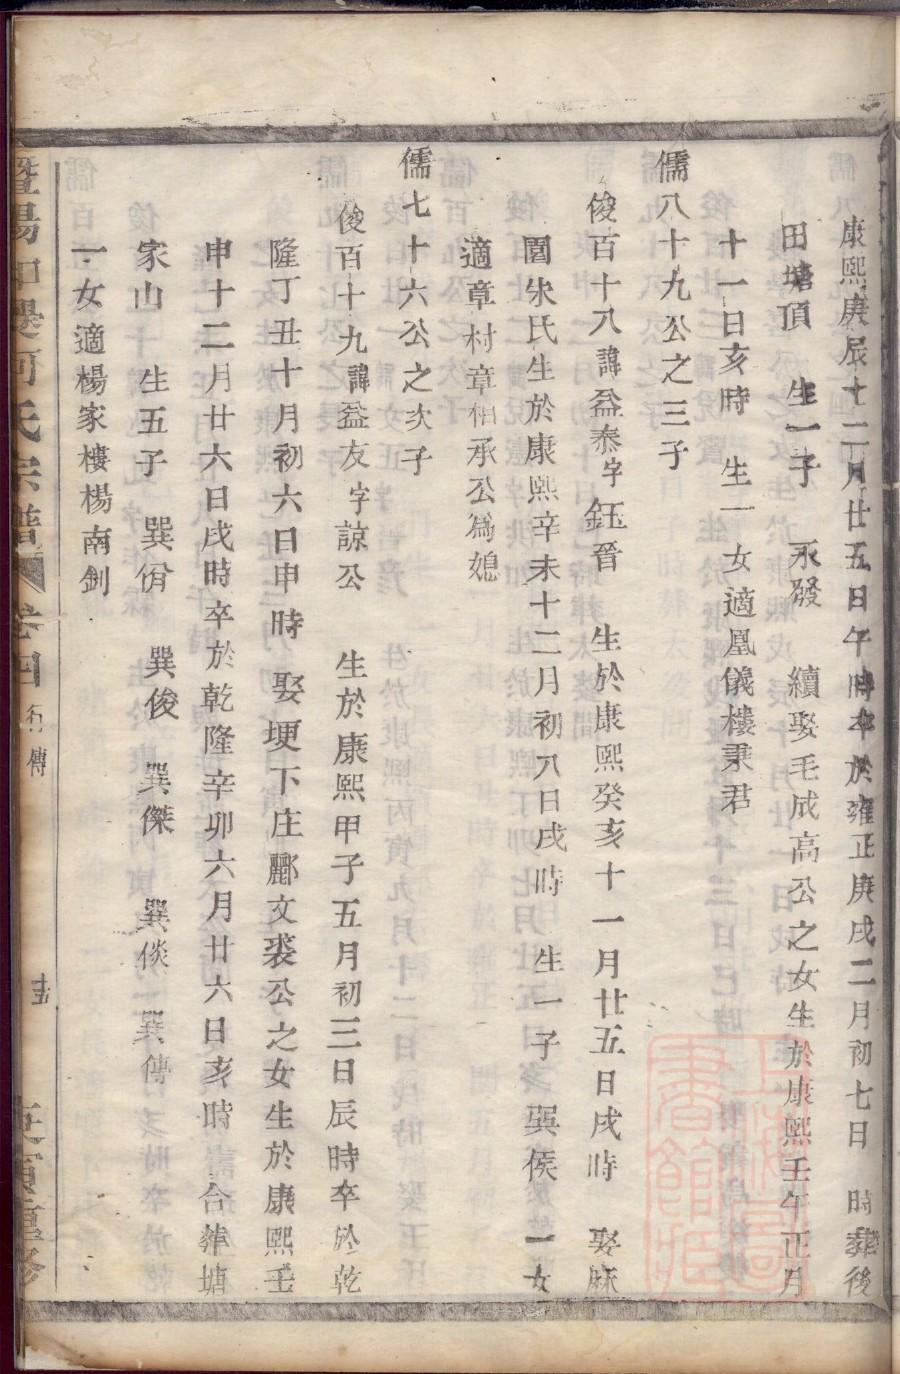 康熙庚辰十二月廿五日午時卒於雍正庚戌二月初七日 時葬後
田塘頂 生一子 永發 續娶毛成高公之女生於康熙壬午正月
十一日亥時 生一女適凰儀樓秉君
儒八十九公之三子
俊百十八諱益泰字鈺晉 生於康熙癸亥十一月廿五日戌時 娶麻
園朱氏生於康熙辛未十二月初八日戌時 生一子巽侯 一女
適章村章相承公為媳
儒七十六公之次子
俊百十九諱益友字諒公 生於康熙甲子五月初三日辰時卒於乾
隆丁丑十月初六日申時 娶埂下庄酈文裘公之女生於康熙壬
申十二月廿六日戌時卒於乾隆辛卯六月廿六日亥時合葬塘
家山 生五子 巽佾 巽俊 巽傑 巽倓 巽傳
一女適楊家樓楊南釗
暨陽 何氏宗譜 卷四 行傳